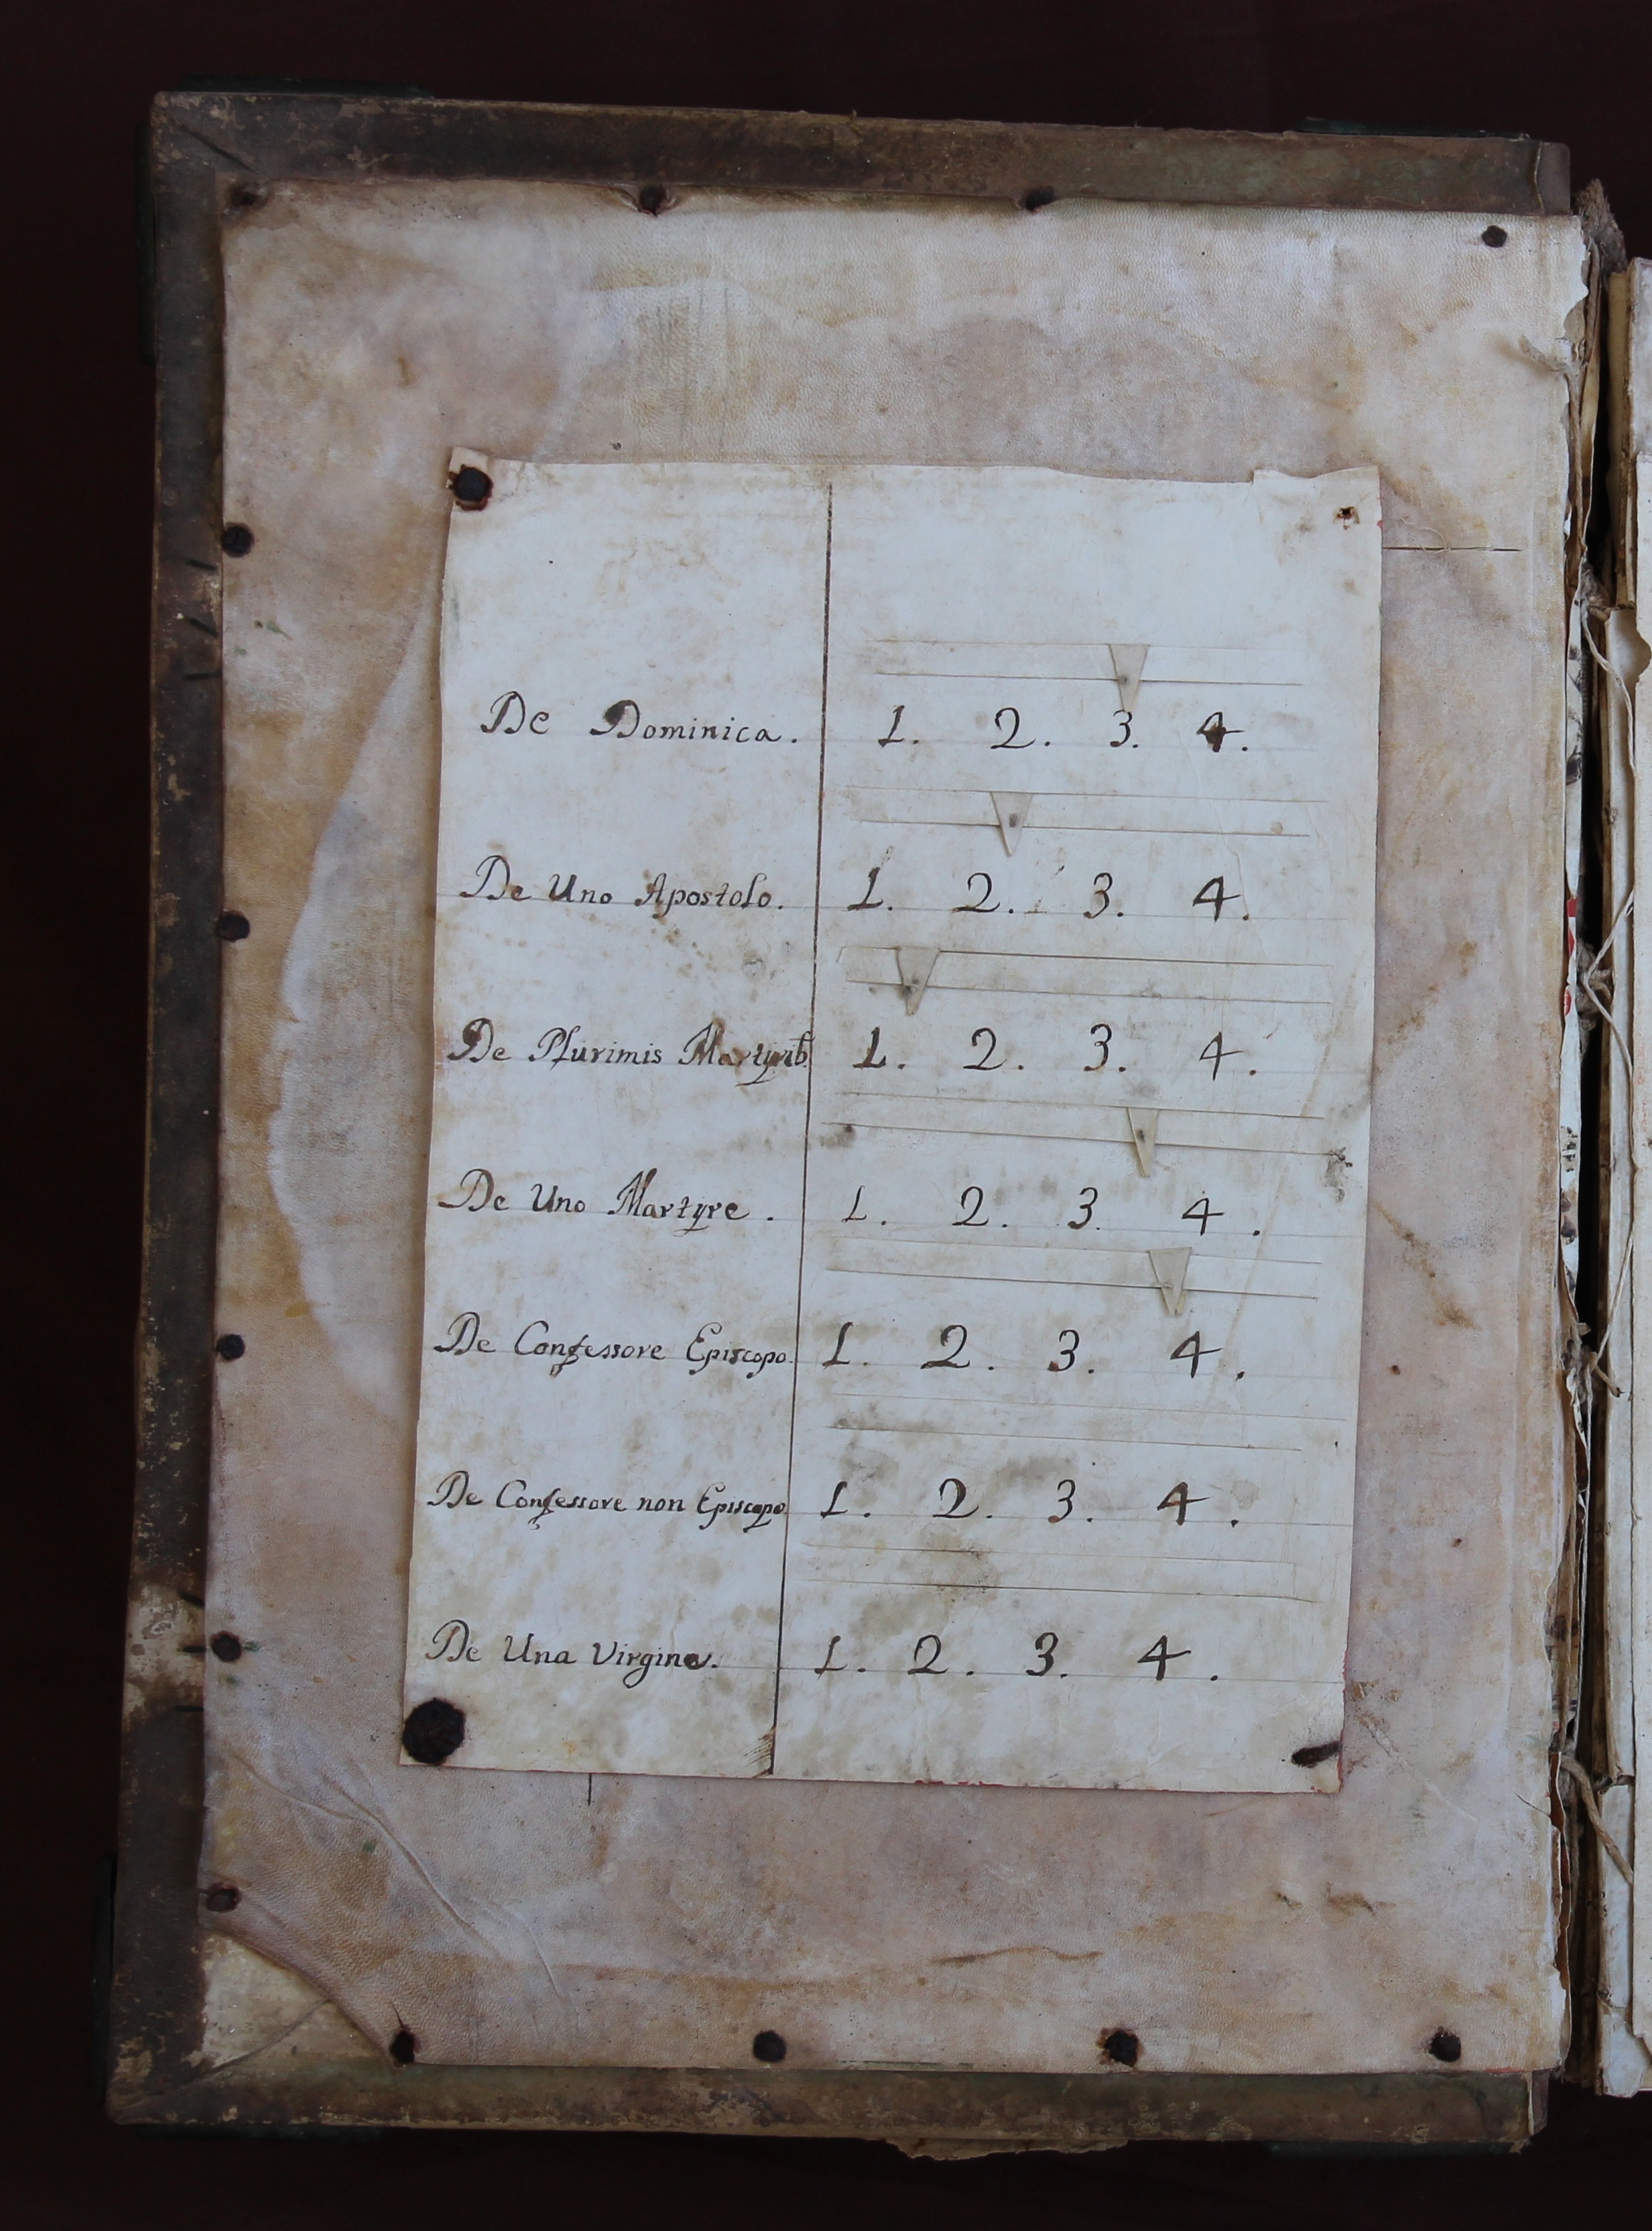 De Dominica. 1. 2. 3. 4.
De Uno Apostolo. 1. 2. 3. 4.
De Plurimis Martyrib. 1. 2. 3. 4.
De Uno Martyre. 1. 2. 3. 4.
De Confessore Episcopo. 1. 2. 3. 4.
De Confessore non Episcopo. 1. 2. 3. 4.
De Una Virgine. 1. 2. 3. 4.